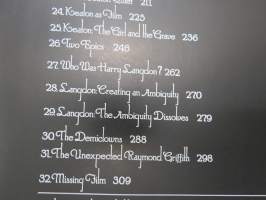 211
24. Keaton as Film 225
25. Keaton: The Girl and the Grave 236
26. Two Epics 246
27. Who Was Harry Langdon? 262
28. Langdon: Creating an Ambiguity 270
29. Langdon: The Ambiguity Dissolves 279
30. The Demiclowns 288
31. The Unexpected Raymond Griffith 298
32. Missing Film 309